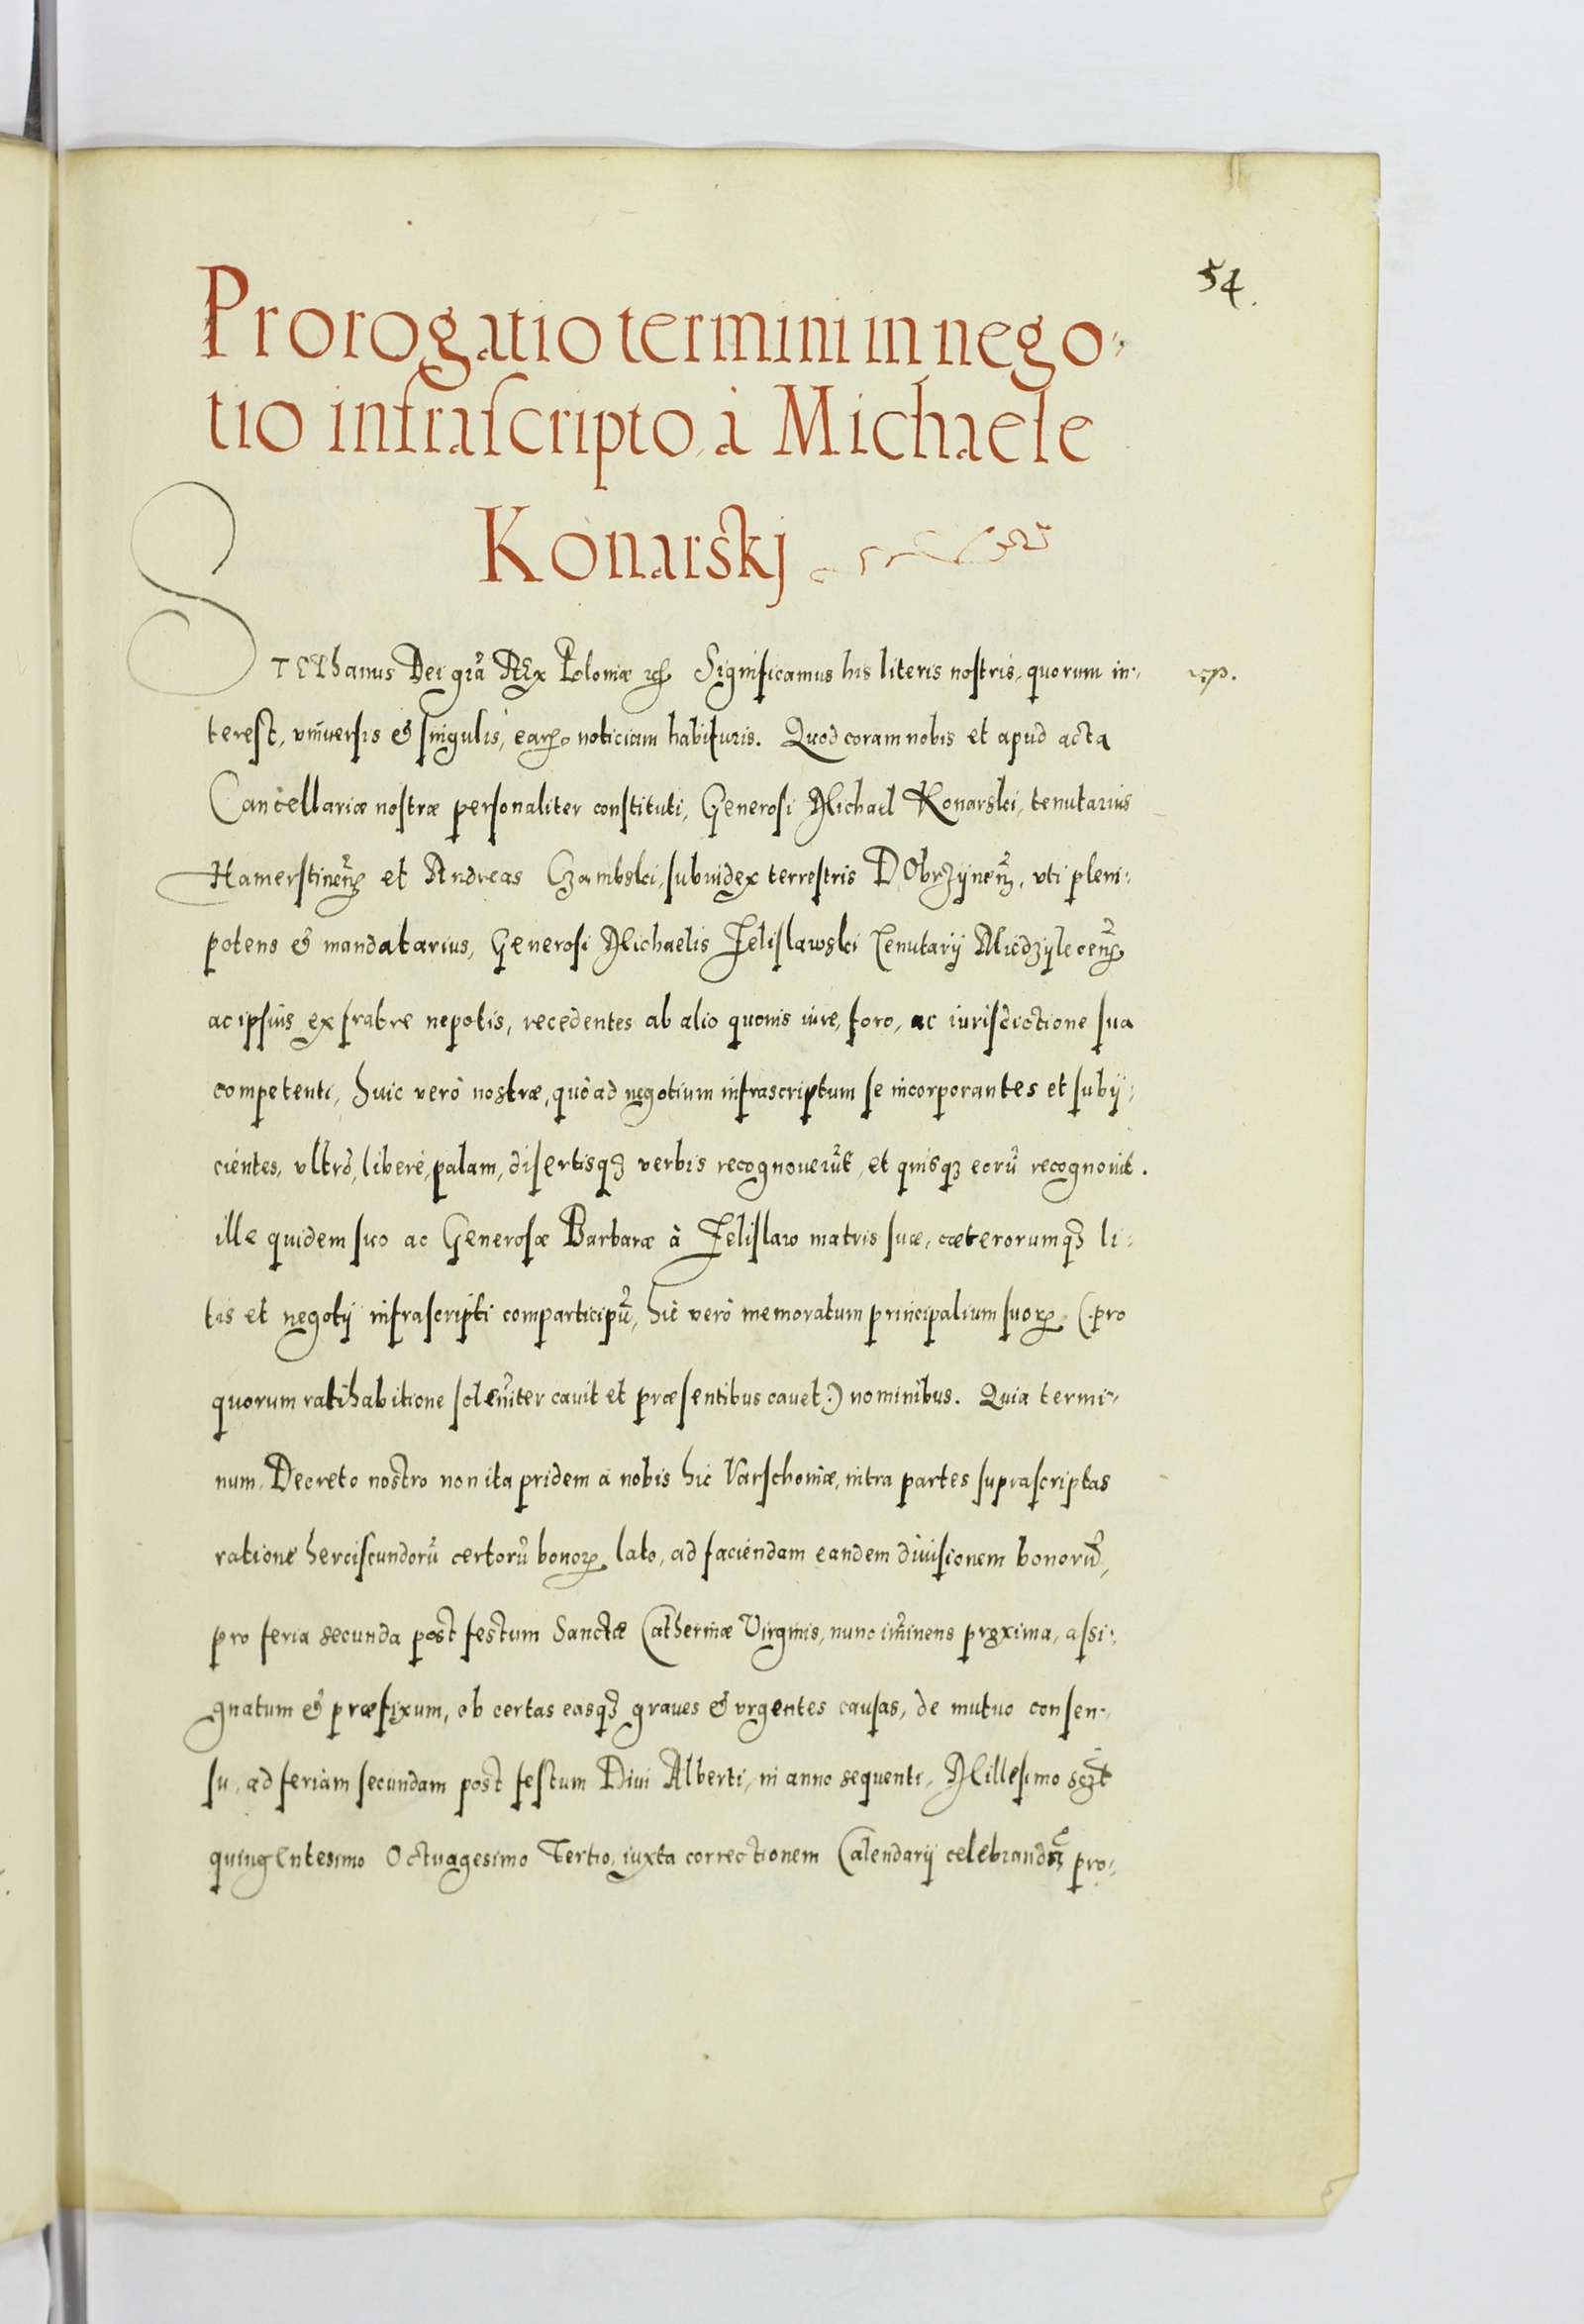 54.
Prorogatio termini in nego-
tio infrascripto, à Michaele
Konarskj
STEPhanus Dei grã REx Poloniæ ꝛc̃. Significamus his literis nostris, quorum in-
terest, vniuersis & singulis, earꝝ noticiam habituris. Quod coram nobis et apud acta
Cancellariæ nostræ personaliter constituti, Generosi Michael Konarski, tenutarius
Hamerstineñ. et Andreas Czambski, subiudex terrestris DObrzÿneñ. vti pleni-
potens & mandatarius, Generosi Michaelis Zelislawski Tenutarij Miedzÿleceñ.
ac ipsius ex fratre nepotis, recedentes ab alio quouis iure, foro, ac iurisdictione sua
competenti, huic verò nostræ, quò ad negotium infrascriptum se incorporantes et subij-
cientes, vltrò, liberè, palam, disertisqꝫ verbis recognouerũt, et quisqꝫ eorũ recognouit.
ille quidem suo ac Generosæ Barbaræ à Zelislaw matris suæ, cæterorumqꝫ li-
tis et negotij infrascripti comparticipũ, hic verò memoratum principalium suoꝝ (:pro
quorum ratihabitione solẽniter cauit et præsentibus cauet:) nominibus. Quia termi-
num, Decreto nostro non ita pridem a nobis hic Varschouiæ, intra partes suprascriptas
ratione herciscundorũ certorũ bonoꝝ lato, ad faciendam eandem diuisionem bonorũ,
pro feria secunda post festum Sanctæ Catherinæ Virginis, nunc im̃inens proxima, assi-
gnatum & præfixum, ob certas easqꝫ graues & vrgentes causas, de mutuo consen-
su, ad feriam secundam post festum Diui Alberti, in anno sequenti, Millesimo
quingentesimo Octuagesimo Tertio, iuxta correctionem Calendarij celebrandũ pro-